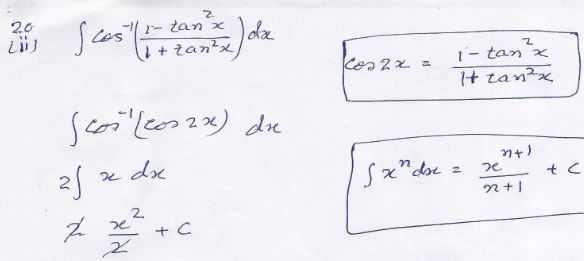 20
(ii) ∫ cos⁻¹((1 - tan²x)/(1 + tan²x)) dx
cos 2x = (1 - tan²x)/(1 + tan²x)
∫ cos⁻¹(cos 2x) dx
2∫ x dx
2 x²/2 + C
∫ xⁿ dx = xⁿ⁺¹/(n+1) + C